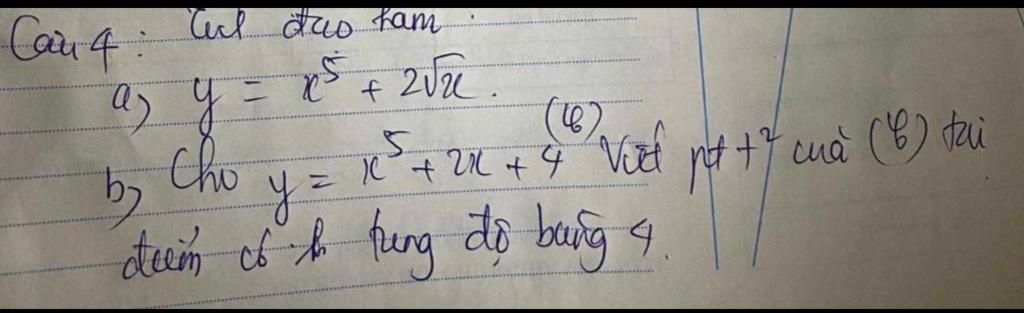 Câu 4: Tính đạo hàm.
a) y = x⁵ + 2√x.
b) Cho y = x⁵ + 2x + 4 (C) Viết pt t² của (C) tại
điểm có tung độ bằng 4.